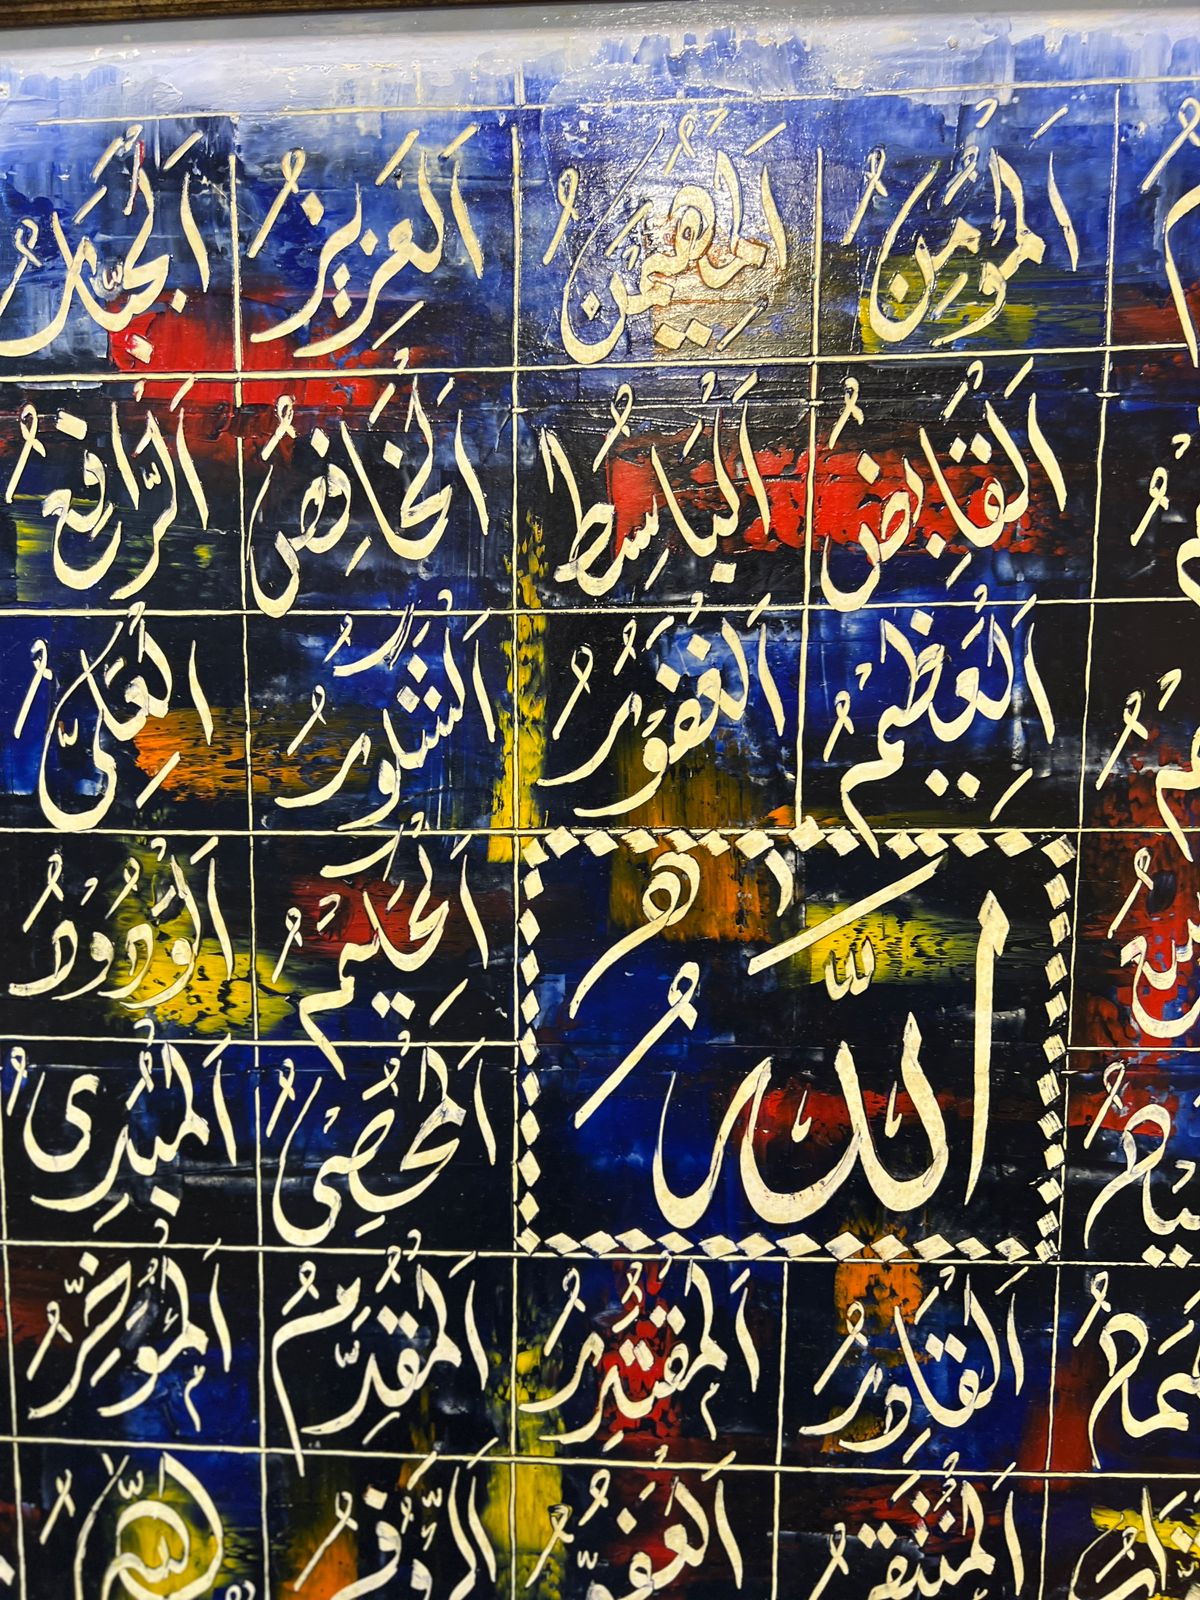 اَلْمُؤْمِنُ اَلْمُهَيْمِنُ اَلْعَزِيزُ اَلْجَبَّارُ
اَلْقَابِضُ اَلْبَاسِطُ اَلْخَافِضُ اَلرَّافِعُ
اَلْعَظِيمُ اَلْغَفُورُ اَلشَّكُورُ اَلْعَلِيُّ
اَللّٰهُ اَلْحَكِيمُ اَلْوَدُودُ
اَلْمُحْصِي اَلْمُبْدِئُ
اَلْقَادِرُ اَلْمُقْتَدِرُ اَلْمُقَدِّمُ اَلْمُؤَخِّرُ
اَلْمُنْتَقِمُ اَلْعَفُوُّ اَلرَّؤُفُ